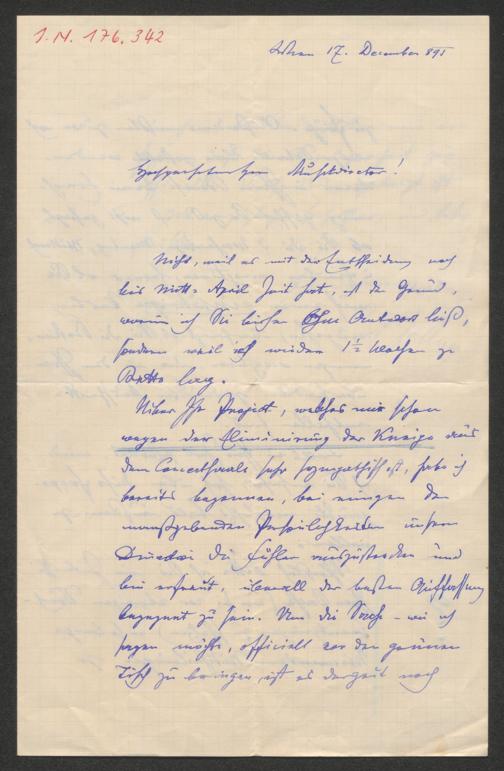 I.N. 176.342
Wien 17. December 895
Hochgeehrter Herr Musikdirector!
Nicht, weil es mit der Entscheidung noch
bis Mitte April Zeit hat, ist der Grund,
warum ich Sie bisher ohne Antwort ließ,
sondern weil ich wieder 1½ Wochen zu
Bette lag.
Über Ihr Project, welches mir schon
wegen der Eliminirung der Kneipe aus
dem Concertsaale sehr sympathisch ist, habe ich
bereits begonnen, bei einigen der
maaßgebenden Persönlichkeiten unserer
Direction die Fühler auszustrecken und
bin erfreut, überall der besten Auffassung
begegnet zu sein. Um die Sache – wie ich
sagen möchte, officiell vor den grünen
Tisch zu bringen, ist es derzeit noch